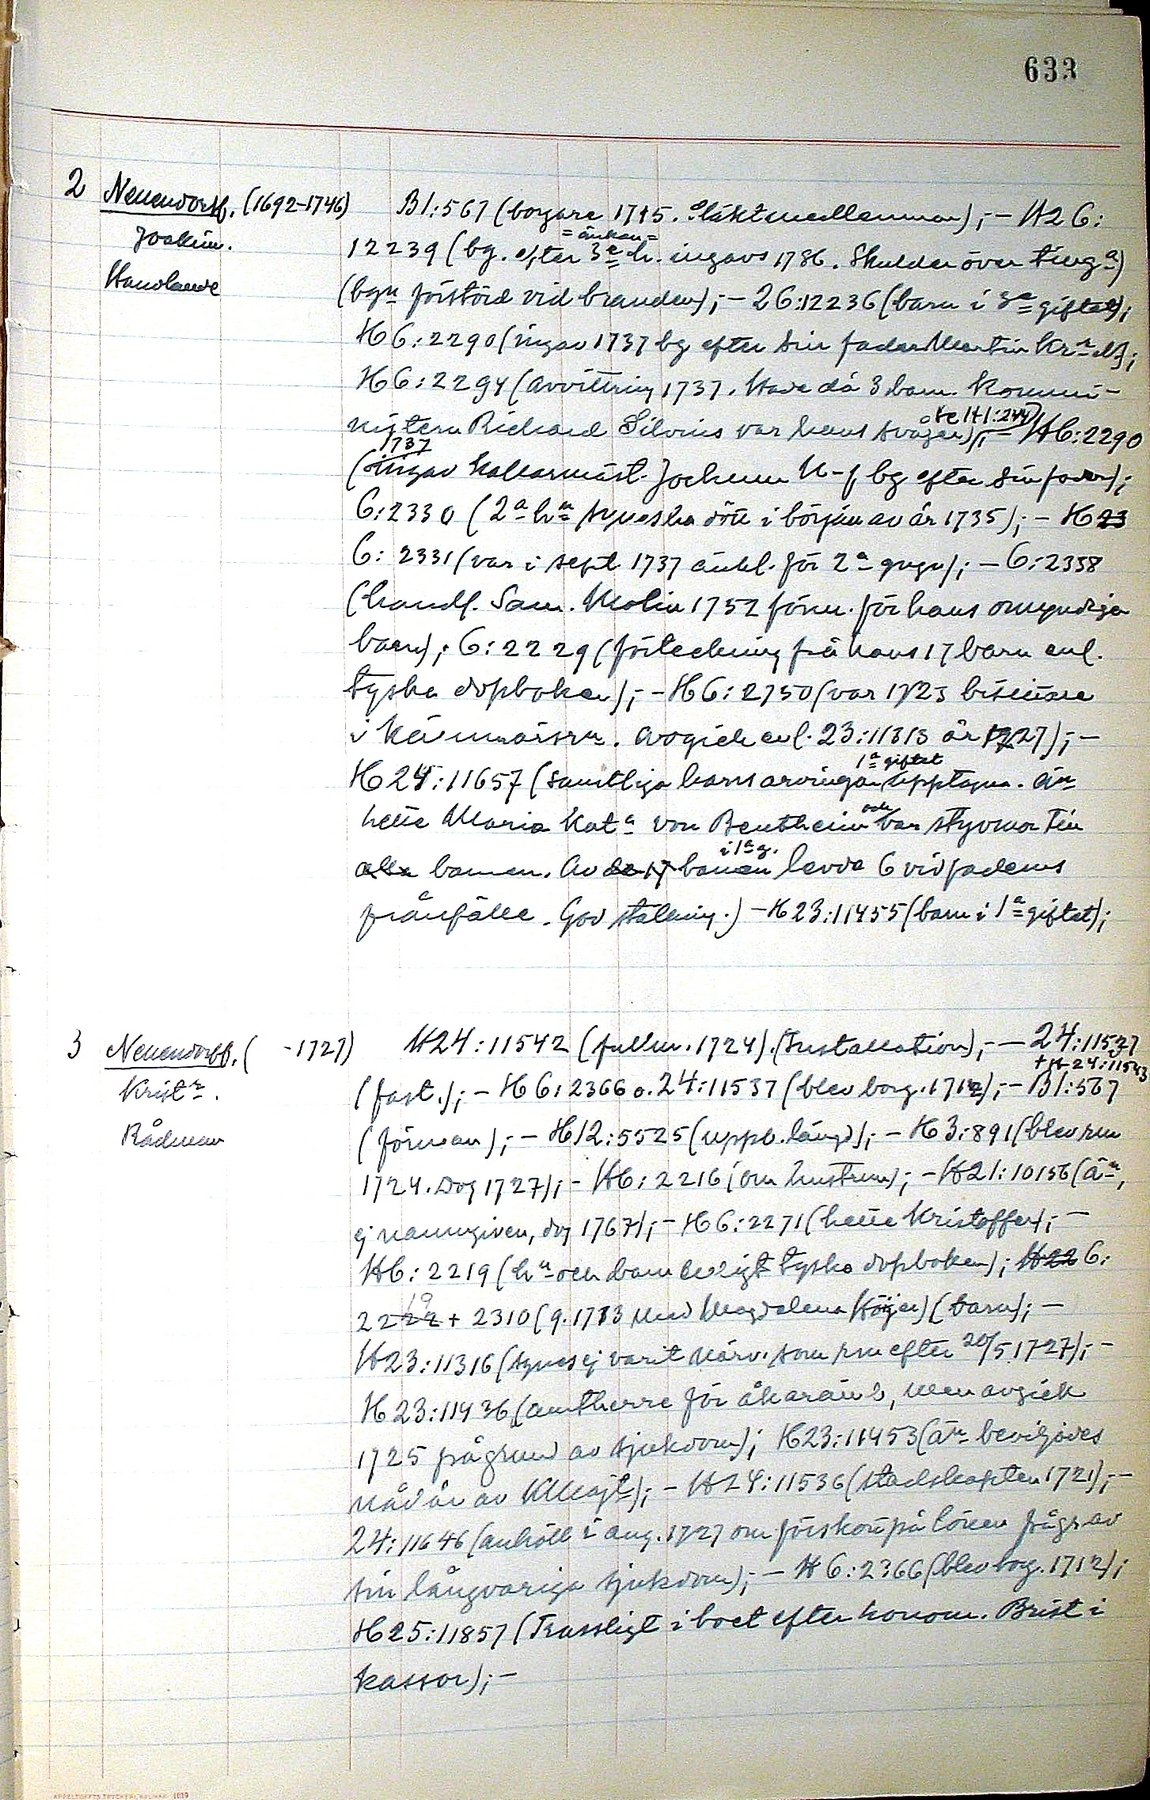 633
2 Neuendorff. (1692-1746) B1:567 (borgare 1715. Släktmedlemmar); - H26:
Joakim. 12239 (bg. efter 3e h. =änkan= ingavs 1786. Skulder över tillg-a)
Handlande (bgn förstörd vid branden); - 26:12236 (barn i 3e giftet);
H6:2290 (ingav 1737 bg efter sin fader Martin
H6:2294 (avvittring 1737. Hade då 3 barn. Kommi-
nistern Rickard Silvius var hans svåger); - H6:2290
(ingav 1737 källarmäst. Jochum N-f bg efter sin fader);
6:2330 (2a hn synes ha dött i början av år 1735); - H23
6:2331 (var i sept 1737 änkl. för 2a gngn); - 6:2358
(handl. Sam. Molin 1752 förm. för hans omyndiga
barn); 6:2229 (förteckning på hans 17 barn enl.
tyska dopboken); - H6:2750 (var 1723 bisittare
i Kämnärsrn. Avgick enl. 23:11313 år 1727); -
H24:11657 (samtliga hans arvingar 1a giftet upptagna. Än
hette Maria Kata von Bentheim och var styvmor till
alla barnen. Av de 17 barnen i 1a g. levde 6 vid faderns
frånfälle. God ställning.) - H23:11455 (barn i 1a giftet);
3 Neuendorff. ( -1727) H24:11542 (fullm. 1724). (Installation); - 24:11527
+ H 24:11543
Kristr. (fast.); - H6:2366 o. 24:11537 (blev borg. 1712); - B1:567
Rådman (förman); - H12:5525 (uppb. längd); - H3:891 (blev rm
1724. Dog 1727); - H6:2216 (om hustrun); - H21:10156 (än,
ej namngiven, dog 1767); - H6:2271 (hette Kristoffer); -
H6:2219 (hn och barn enligt tyska dopboken); H22 6:
2222 19 + 2310 (g. 1713 med Magdalena Höijer) (barn); -
H23:11316 (synes ej varit närv. som rm efter 20/5 1727); -
H23:11436 (amtherre för åkarämb, men avgick
1725 på grund av sjukdom); H23:11453 (än beviljades
nådår av KMajt); - H24:11536 (stadskapten 1721); -
24:11646 (anhöll i aug. 1727 om förskott på lönen pågr av
sin långvariga sjukdom); - H6:2366 (blev borg. 1712);
H25:11857 (Trassligt i boet efter honom. Brist i
kassor); -